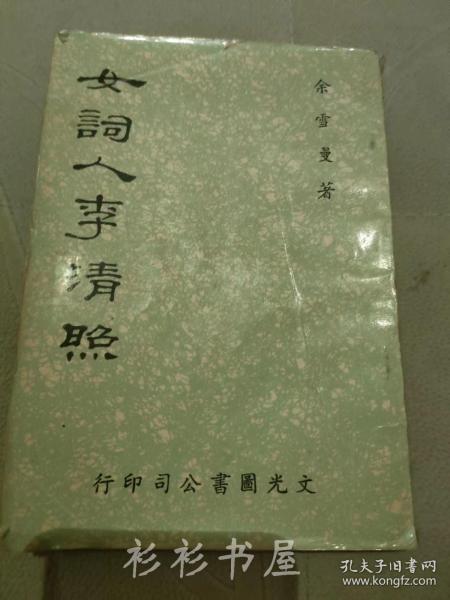 余雪曼著
女詞人李清照
文光圖書公司印行
衫衫书屋
孔夫子旧书网
www.kongfz.com